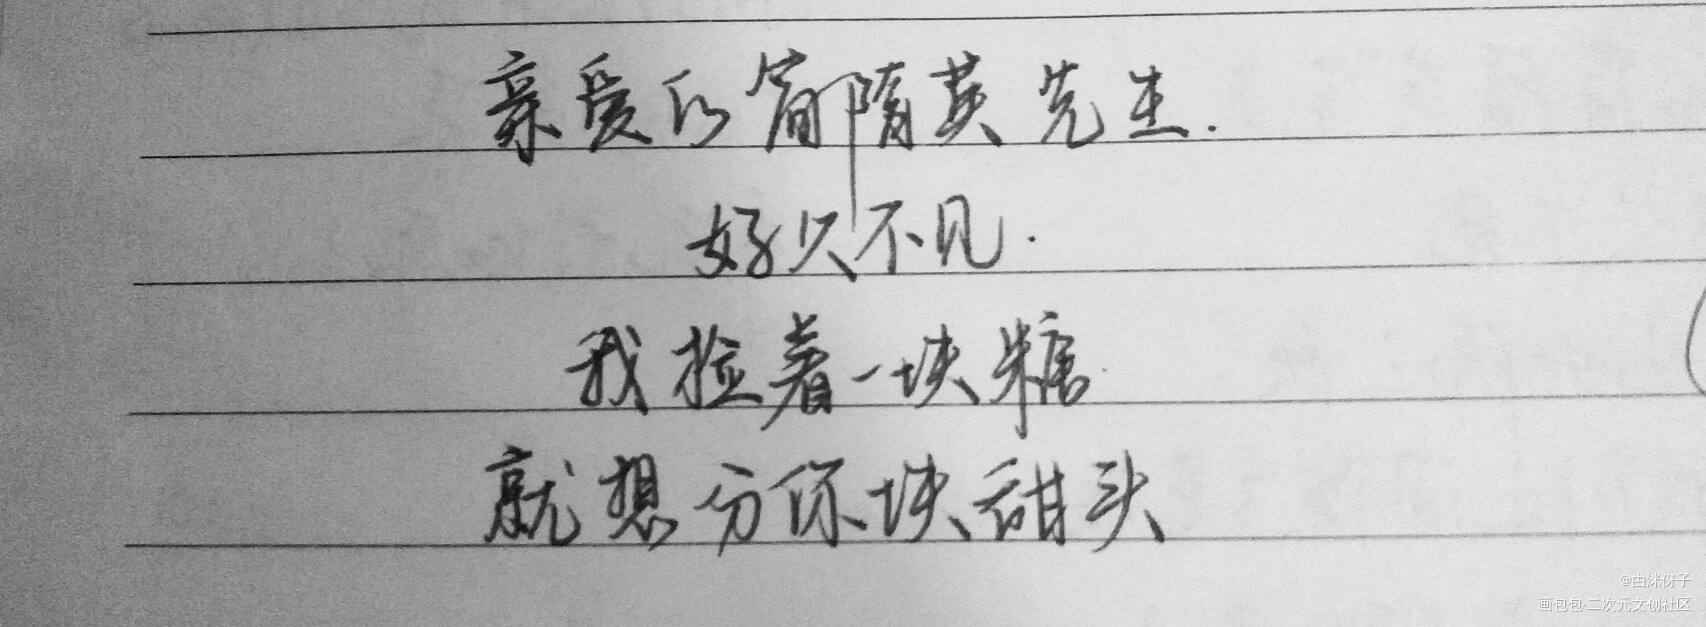 亲爱的简隋英先生.
好久不见.
我捡着一块糖
就想分你块甜头
@由洣伢子
画包包·二次元文创社区